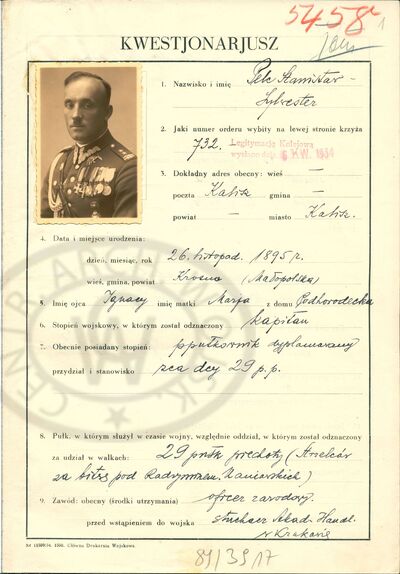 5458
1
KWESTJONARJUSZ
1. Nazwisko i imię Pelc Stanisław-
Sylwester
2. Jaki numer orderu wybity na lewej stronie krzyża
732. Legitymację Kolejową
wysłano dnia 6 KW. 1934
3. Dokładny adres obecny: wieś —
poczta Kalisz gmina —
powiat — miasto Kalisz.
4. Data i miejsce urodzenia:
dzień, miesiąc, rok 26. listopad. 1895 r.
wieś, gmina, powiat Krosno (Małopolska)
5. Imię ojca Ignacy imię matki Marja z domu Podhorodecka
6. Stopień wojskowy, w którym został odznaczony kapitan
7. Obecnie posiadany stopień: ppułkownik dyplomowany
przydział i stanowisko zca dcy 29 p.p.
8. Pułk, w którym służył w czasie wojny, względnie oddział, w którym został odznaczony
za udział w walkach: 29 pułk piechoty (Strzelców
za bitwę pod Radzyminem. Kaniowskich)
9. Zawód: obecny (środki utrzymania) oficer zawodowy.
przed wstąpieniem do wojska słuchacz Akad. Handl.
w Krakowie
Główna Drukarnia Wojskowa.
87/3917